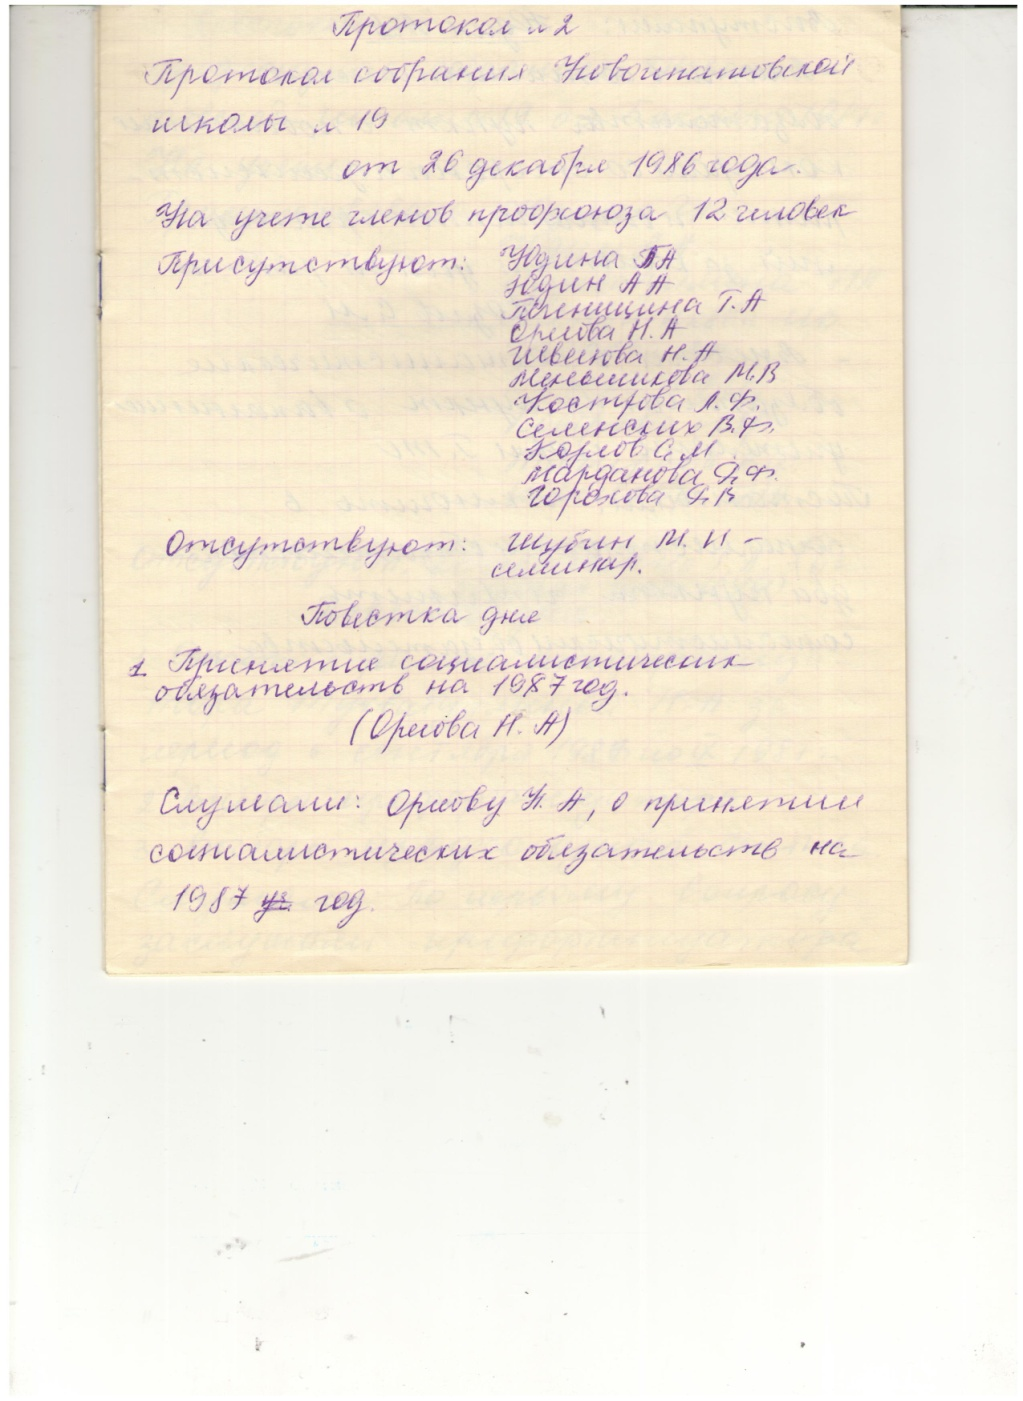 Протокол № 2
Протокол собрания Новоипатовской
школы № 19
от 26 декабря 1986 года.
На учете членов профсоюза 12 человек
Присутствуют: Юдина Г А
Юдин А А
Пшеницина Т. А
Орлова Н. А
Швецова Н. А
Меньшикова М. В
Кострова Л. Ф.
Селенских В. Ф.
Козлов С. М
Марданова Ф. Ф.
Горохова Ф. В
Отсутствуют: Шубин М. И –
семинар.
Повестка дня
1. Принятие социалистических
обязательств на 1987 год.
(Орлова Н. А)
Слушали: Орлову Н. А, о принятии
социалистических обязательств на
1987 уч. год.